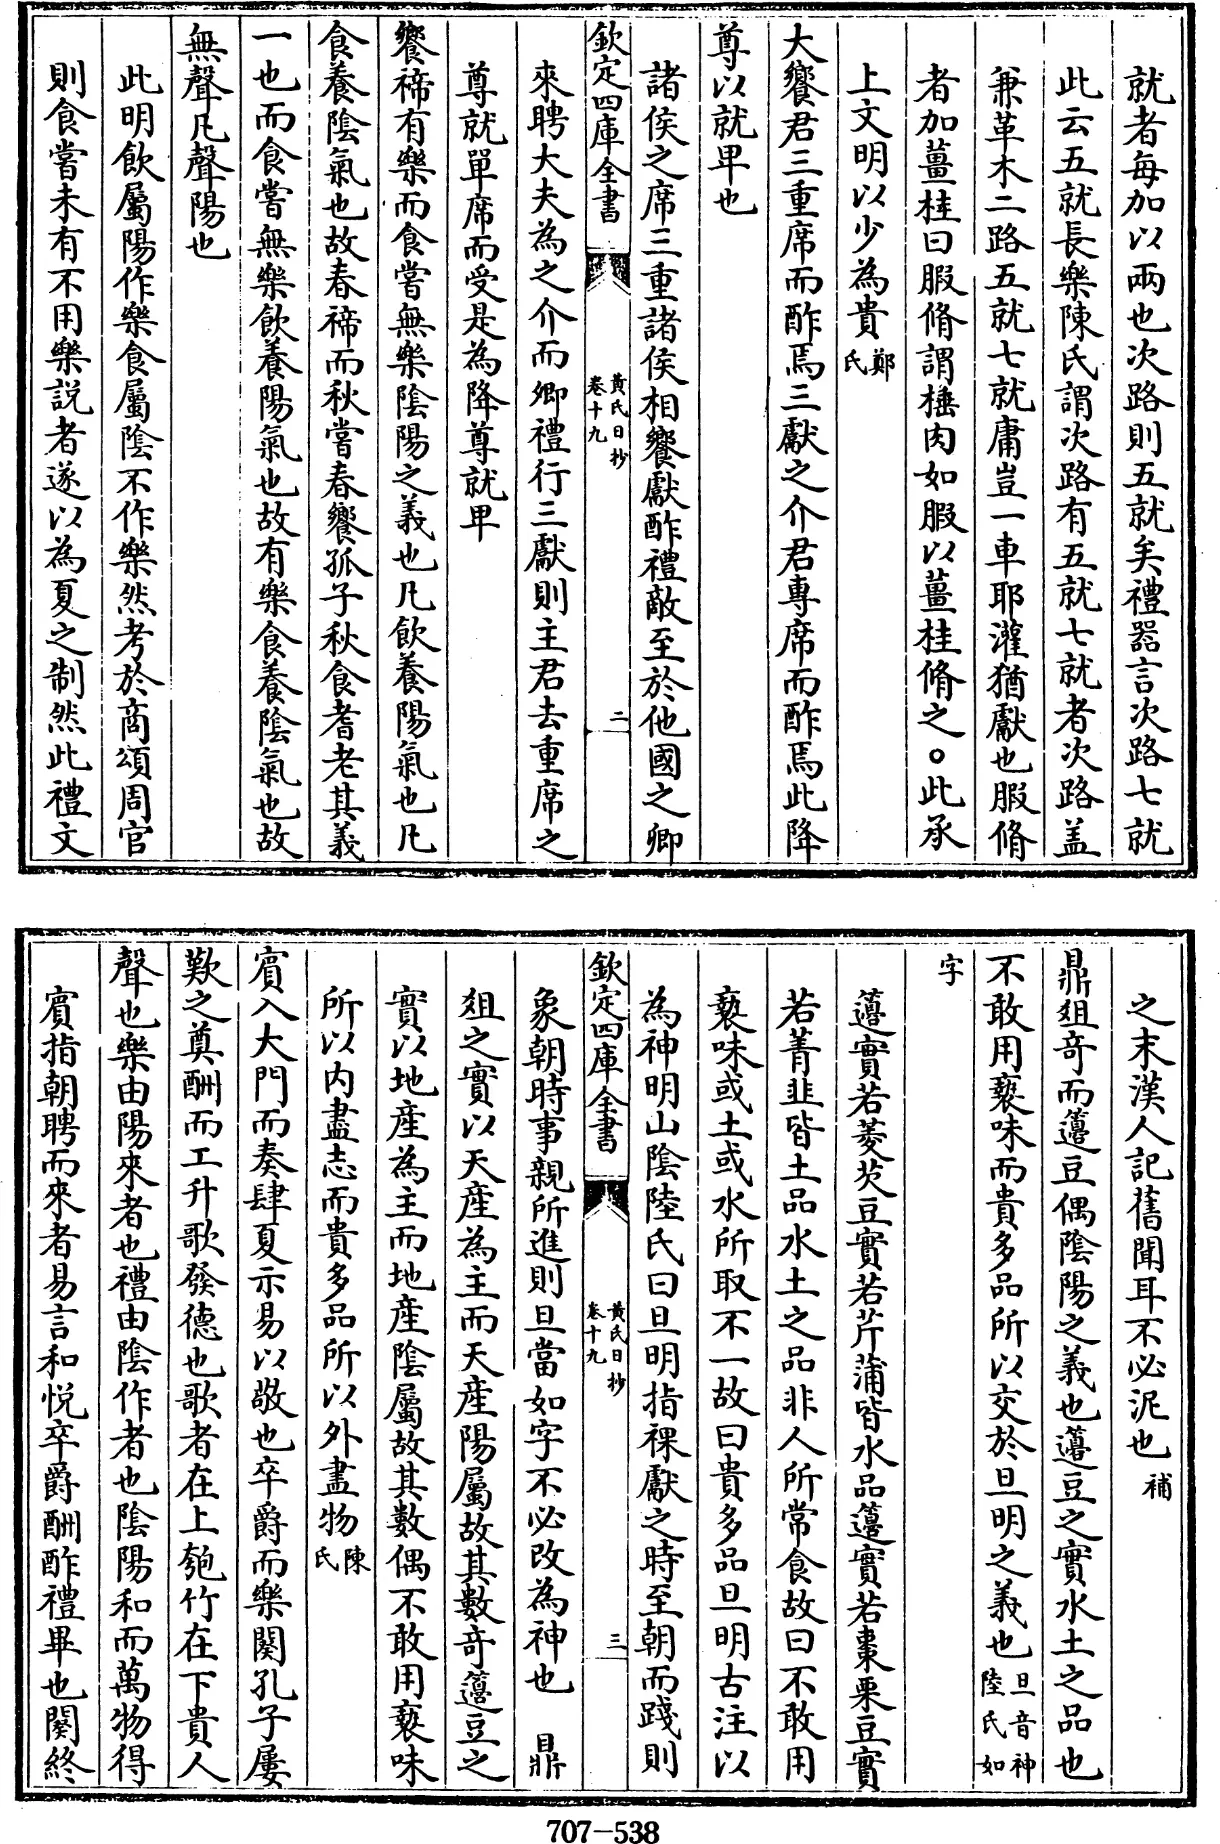 就者每加以兩也次路則五就矣禮器言次路七就
此云五就長樂陳氏謂次路有五就七就者次路盖
兼革木二路五就七就庸豈一車耶灌猶獻也腶脩
者加薑桂曰腶脩謂捶肉如腶以薑桂脩之○此承
上文明以少為貴鄭氏
大饗君三重席而酢焉三獻之介君專席而酢焉此降
尊以就卑也
諸侯之席三重諸侯相饗獻酢禮敵至於他國之卿
欽定四庫全書 黃氏日抄 卷十九 二
來聘大夫為之介而卿禮行三獻則主君去重席之
尊就單席而受是為降尊就卑
饗禘有樂而食嘗無樂陰陽之義也凡飲養陽氣也凡
食養陰氣也故春禘而秋嘗春饗孤子秋食耆老其義
一也而食嘗無樂飲養陽氣也故有樂食養陰氣也故
無聲凡聲陽也
此明飲屬陽作樂食屬陰不作樂然考於商頌周官
則食嘗未有不用樂説者遂以為夏之制然此禮文
之末漢人記舊聞耳不必泥也補
鼎俎奇而籩豆偶陰陽之義也籩豆之實水土之品也
不敢用褻味而貴多品所以交於旦明之義也旦音神陸氏如
字
籩實若菱芡豆實若芹蒲皆水品籩實若棗栗豆實
若菁韭皆土品水土之品非人所常食故曰不敢用
褻味或土或水所取不一故曰貴多品旦明古注以
為神明山陰陸氏曰旦明指祼獻之時至朝而踐則
欽定四庫全書 黃氏日抄 卷十九 三
象朝時事親所進則旦當如字不必改為神也 鼎
俎之實以天産為主而天産陽屬故其數奇籩豆之
實以地産為主而地産陰屬故其數偶不敢用褻味
所以内盡志而貴多品所以外盡物陳氏
賓入大門而奏肆夏示易以敬也卒爵而樂闋孔子屢
歎之奠酬而工升歌發德也歌者在上匏竹在下貴人
聲也樂由陽來者也禮由陰作者也陰陽和而萬物得
賓指朝聘而來者易言和悦卒爵酬酢禮畢也闋終
707-538